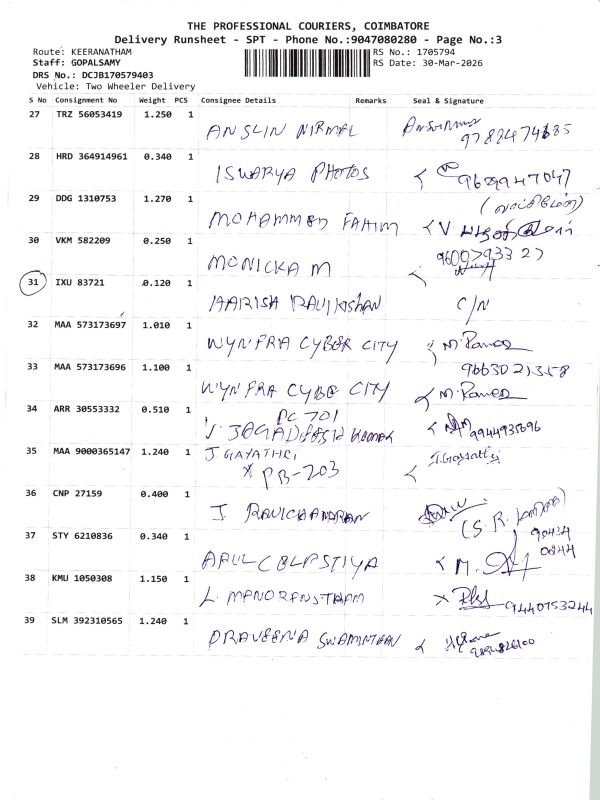 THE PROFESSIONAL COURIERS, COIMBATORE
Delivery Runsheet - SPT - Phone No.:9047080280 - Page No.:3
Route: KEERANATHAM RS No.: 1705794
Staff: GOPALSAMY RS Date: 30-Mar-2026
DRS No.: DCJB170579403
Vehicle: Two Wheeler Delivery
S No Consignment No Weight PCS Consignee Details Remarks Seal & Signature
27 TRZ 56053419 1.250 1 ANSLIN NIRMAL
28 HRD 364914961 0.340 1 ISWARYA PHOTOS 9629947047
29 DDG 1310753 1.270 1 MOHAMMED FAHIM
30 VKM 582209 0.250 1 MONICKA M 9600793327
31 IXU 83721 0.120 1 HARISH RAVIKISHAN C/N
32 MAA 573173697 1.010 1 WYNFRA CYBER CITY
9663021358
33 MAA 573173696 1.100 1 WYNFRA CYBE CITY
34 ARR 30553332 0.510 1 PC 701
9944935696
35 MAA 9000365147 1.240 1 J GAYATHRI
X PB-203
36 CNP 27159 0.400 1 J. RAVICHANDRAN
37 STY 6210836 0.340 1 M.
38 KMU 1050308 1.150 1 9440753244
39 SLM 392310565 1.240 1 PRAVEENA SWAMINTHAN